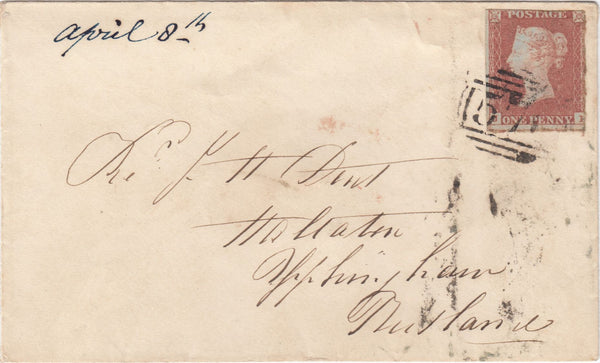 April 8th
POSTAGE
ONE PENNY
J. H Dent
Uppingham
Rutland